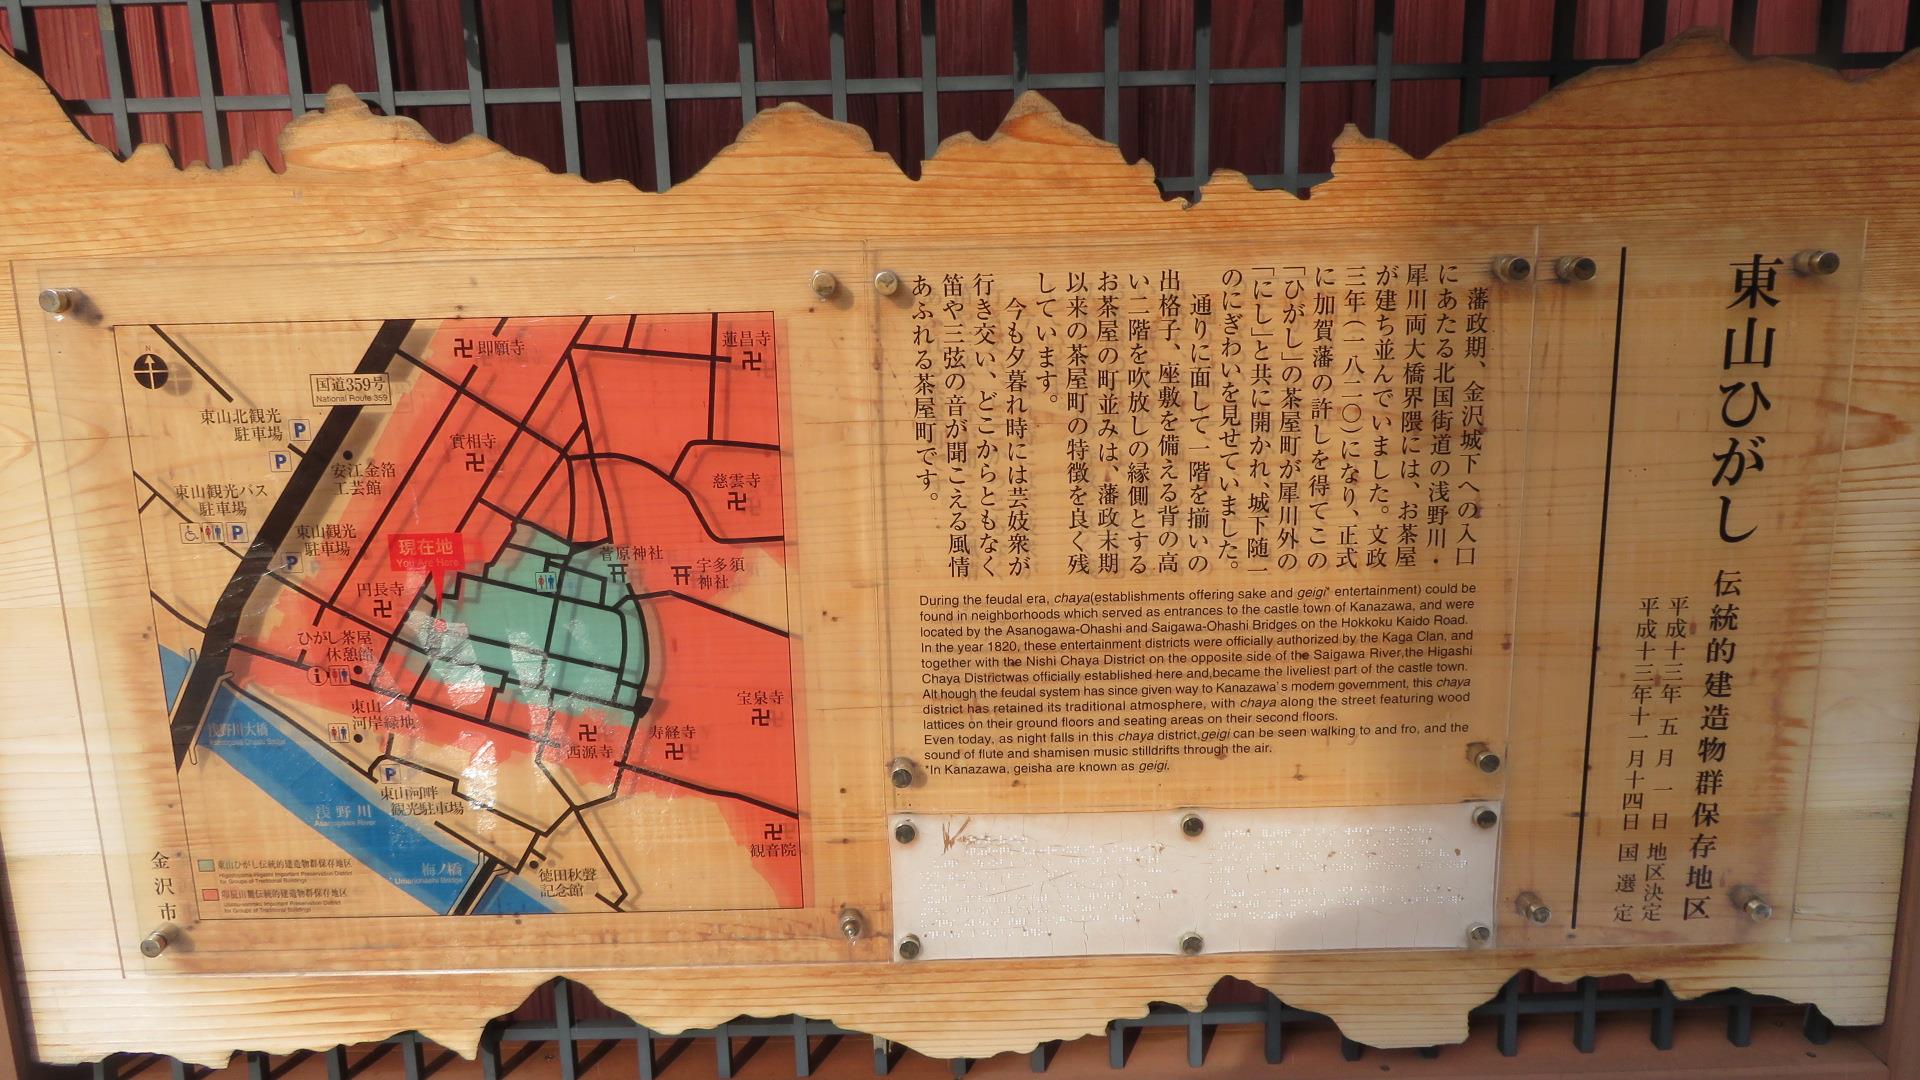 東山ひがし 伝統的建造物群保存地区
平成十三年 五月 一日 地区決定
平成十三年十一月十四日 国選定
藩政期、金沢城下への入口
にあたる北国街道の浅野川・
犀川両大橋界隈には、お茶屋
が建ち並んでいました。文政
三年(一八二〇)になり、正式
に加賀藩の許しを得てこの
「ひがし」の茶屋町が犀川外の
「にし」と共に開かれ、城下随一
のにぎわいを見せていました。
通りに面して、一階を揃いの
出格子、座敷を備える背の高
い二階を吹放しの縁側とする
お茶屋の町並みは、藩政末期
以来の茶屋町の特徴を良く残
しています。
今も夕暮れ時には芸妓衆が
行き交い、どこからともなく
笛や三弦の音が聞こえる風情
あふれる茶屋町です。
During the feudal era, chaya(establishments offering sake and geigi* entertainment) could be
found in neighborhoods which served as entrances to the castle town of Kanazawa, and were
located by the Asanogawa-Ohashi and Saigawa-Ohashi Bridges on the Hokkoku Kaido Road.
In the year 1820, these entertainment districts were officially authorized by the Kaga Clan, and
together with the Nishi Chaya District on the opposite side of the Saigawa River,the Higashi
Chaya Districtwas officially established here and,became the liveliest part of the castle town.
Alt hough the feudal system has since given way to Kanazawa's modern government, this chaya
district has retained its traditional atmosphere, with chaya along the street featuring wood
lattices on their ground floors and seating areas on their second floors.
Even today, as night falls in this chaya district,geigi can be seen walking to and fro, and the
sound of flute and shamisen music stilldrifts through the air.
*In Kanazawa, geisha are known as geigi.
N
国道359号
National Route 359
即願寺
蓮昌寺
東山北観光
駐車場
P
P
實相寺
安江金箔
工芸館
慈雲寺
東山観光バス
駐車場
P
東山観光
駐車場
P
現在地
You Are Here
菅原神社
宇多須
神社
円長寺
ひがし茶屋
休憩館
東山
河岸緑地
宝泉寺
寿経寺
西源寺
浅野川大橋
Asanogawa Ohashi Bridge
P
東山河畔
観光駐車場
浅野川
Asanogawa River
観音院
梅ノ橋
Umenohashi Bridge
徳田秋聲
記念館
金沢市
東山ひがし伝統的建造物群保存地区
Higashiyama Higashi Important Preservation District
for Groups of Traditional Buildings
卯辰山麓伝統的建造物群保存地区
Utatsu-sanroku Important Preservation District
for Groups of Traditional Buildings